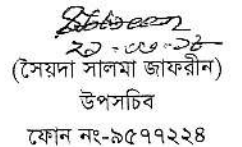 (সৈয়দা সালমা জাফরীন)
উপসচিব
ফোন নং-৯৫৭৭২২৪